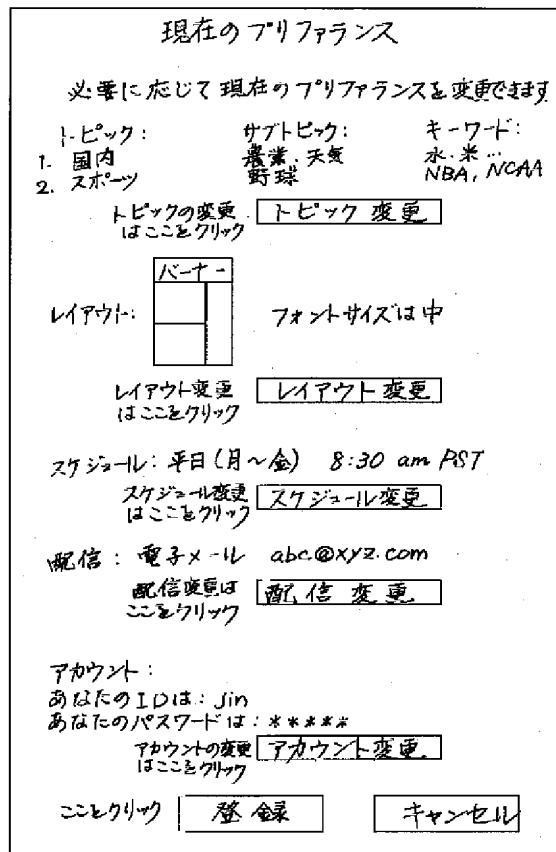 現在のプリファランス
必要に応じて現在のプリファランスを変更できます
トピック: サブトピック: キーワード:
1. 国内 農業.天気 水.米…
2. スポーツ 野球 NBA, NCAA
トピックの変更
はここをクリック トピック 変更
バーナー
レイアウト: フォントサイズは中
レイアウト変更
はここをクリック レイアウト変更
スケジュール: 平日(月~金) 8:30 am PST
スケジュール変更
はここをクリック スケジュール変更
配信: 電子メール abc@xyz.com
配信変更は
ここをクリック 配信変更
アカウント:
あなたのIDは: Jin
あなたのパスワードは: *****
アカウントの変更
はここをクリック アカウント変更
ここをクリック 登録 キャンセル